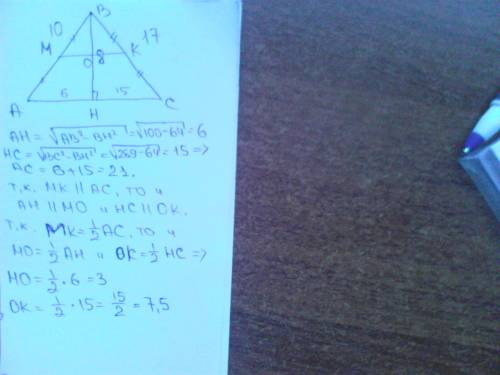 B
10
17
M
K
O
8
6
15
A
H
C
AH = √AB²-BH² = √100-64 = 6
HC = √BC²-BH² = √289-64 = 15 =>
AC = 6+15 = 21.
т.к. MK || AC, то и
AH || MO и HC || OK.
т.к. MK = 1/2 AC, то и
MO = 1/2 AH и OK = 1/2 HC =>
MO = 1/2 · 6 = 3
OK = 1/2 · 15 = 15/2 = 7,5